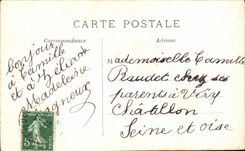 CARTE POSTALE
Correspondance
Adresse
Bonjour
à Camille
et à Hélianth
Madeleine
Mademoiselle Camille
Raudet chez ses
parents à Viry
Châtillon
Seine et oise